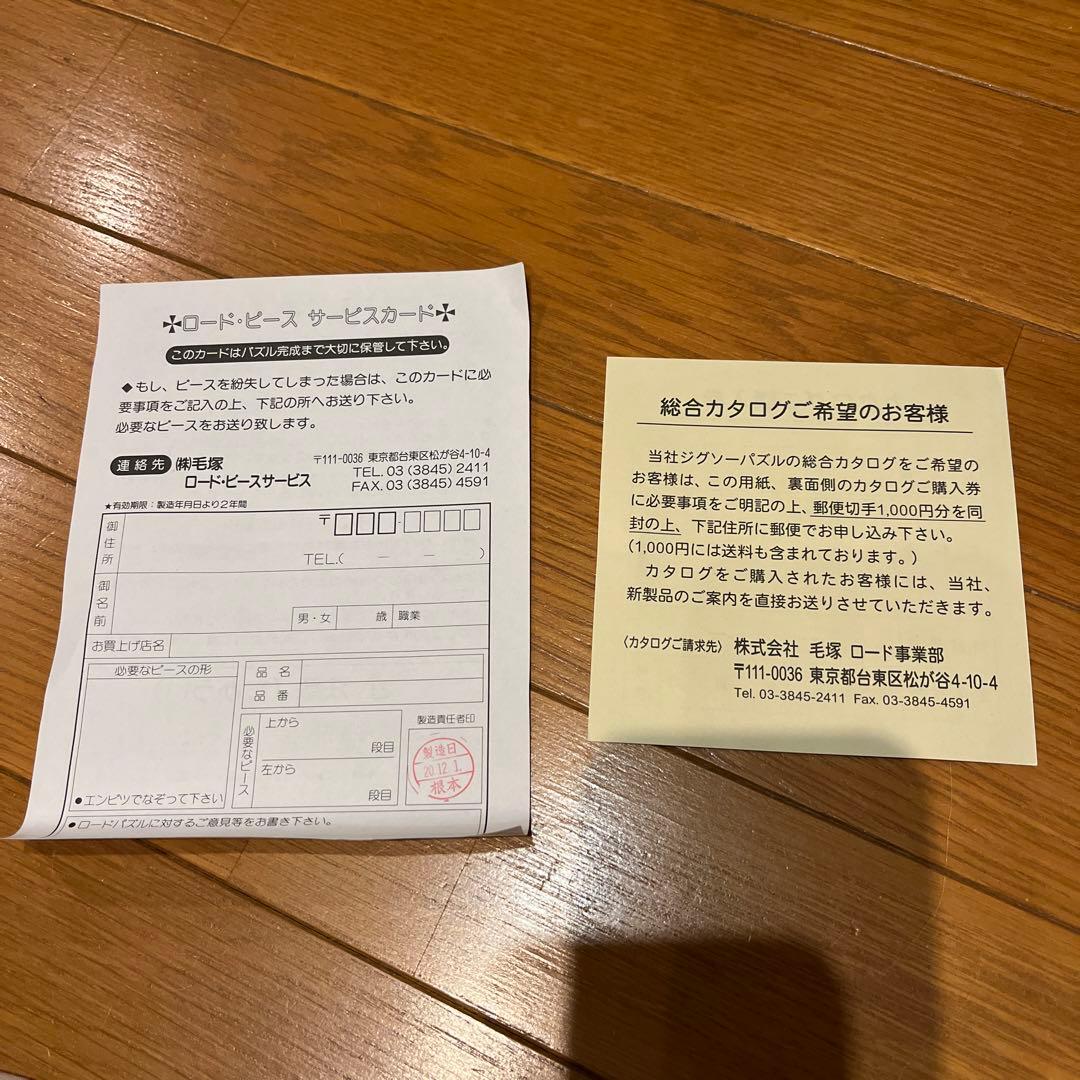 ✠ロード・ピース サービスカード✠
このカードはパズル完成まで大切に保管して下さい。
◆もし、ピースを紛失してしまった場合は、このカードに必
要事項をご記入の上、下記の所へお送り下さい。
必要なピースをお送り致します。
連絡先 ㈱毛塚
ロード・ピースサービス
〒111-0036 東京都台東区松が谷4-10-4
TEL. 03 (3845) 2411
FAX. 03 (3845) 4591
★有効期限：製造年月日より2年間
御住所
〒□□□-□□□□
TEL.( － － )
御名前
男・女 歳 職業
お買上げ店名
必要なピースの形
●エンピツでなぞって下さい
品名
品番
必要なピース
上から
段目
左から
段目
製造責任者印
製造日
20.12.1.
根本
●ロードパズルに対するご意見等をお書き下さい。
総合カタログご希望のお客様
当社ジグソーパズルの総合カタログをご希望の
お客様は、この用紙、裏面側のカタログご購入券
に必要事項をご明記の上、郵便切手1,000円分を同
封の上、下記住所に郵便でお申し込み下さい。
(1,000円には送料も含まれております。)
カタログをご購入されたお客様には、当社、
新製品のご案内を直接お送りさせていただきます。
〈カタログご請求先〉 株式会社 毛塚 ロード事業部
〒111-0036 東京都台東区松が谷4-10-4
Tel. 03-3845-2411 Fax. 03-3845-4591